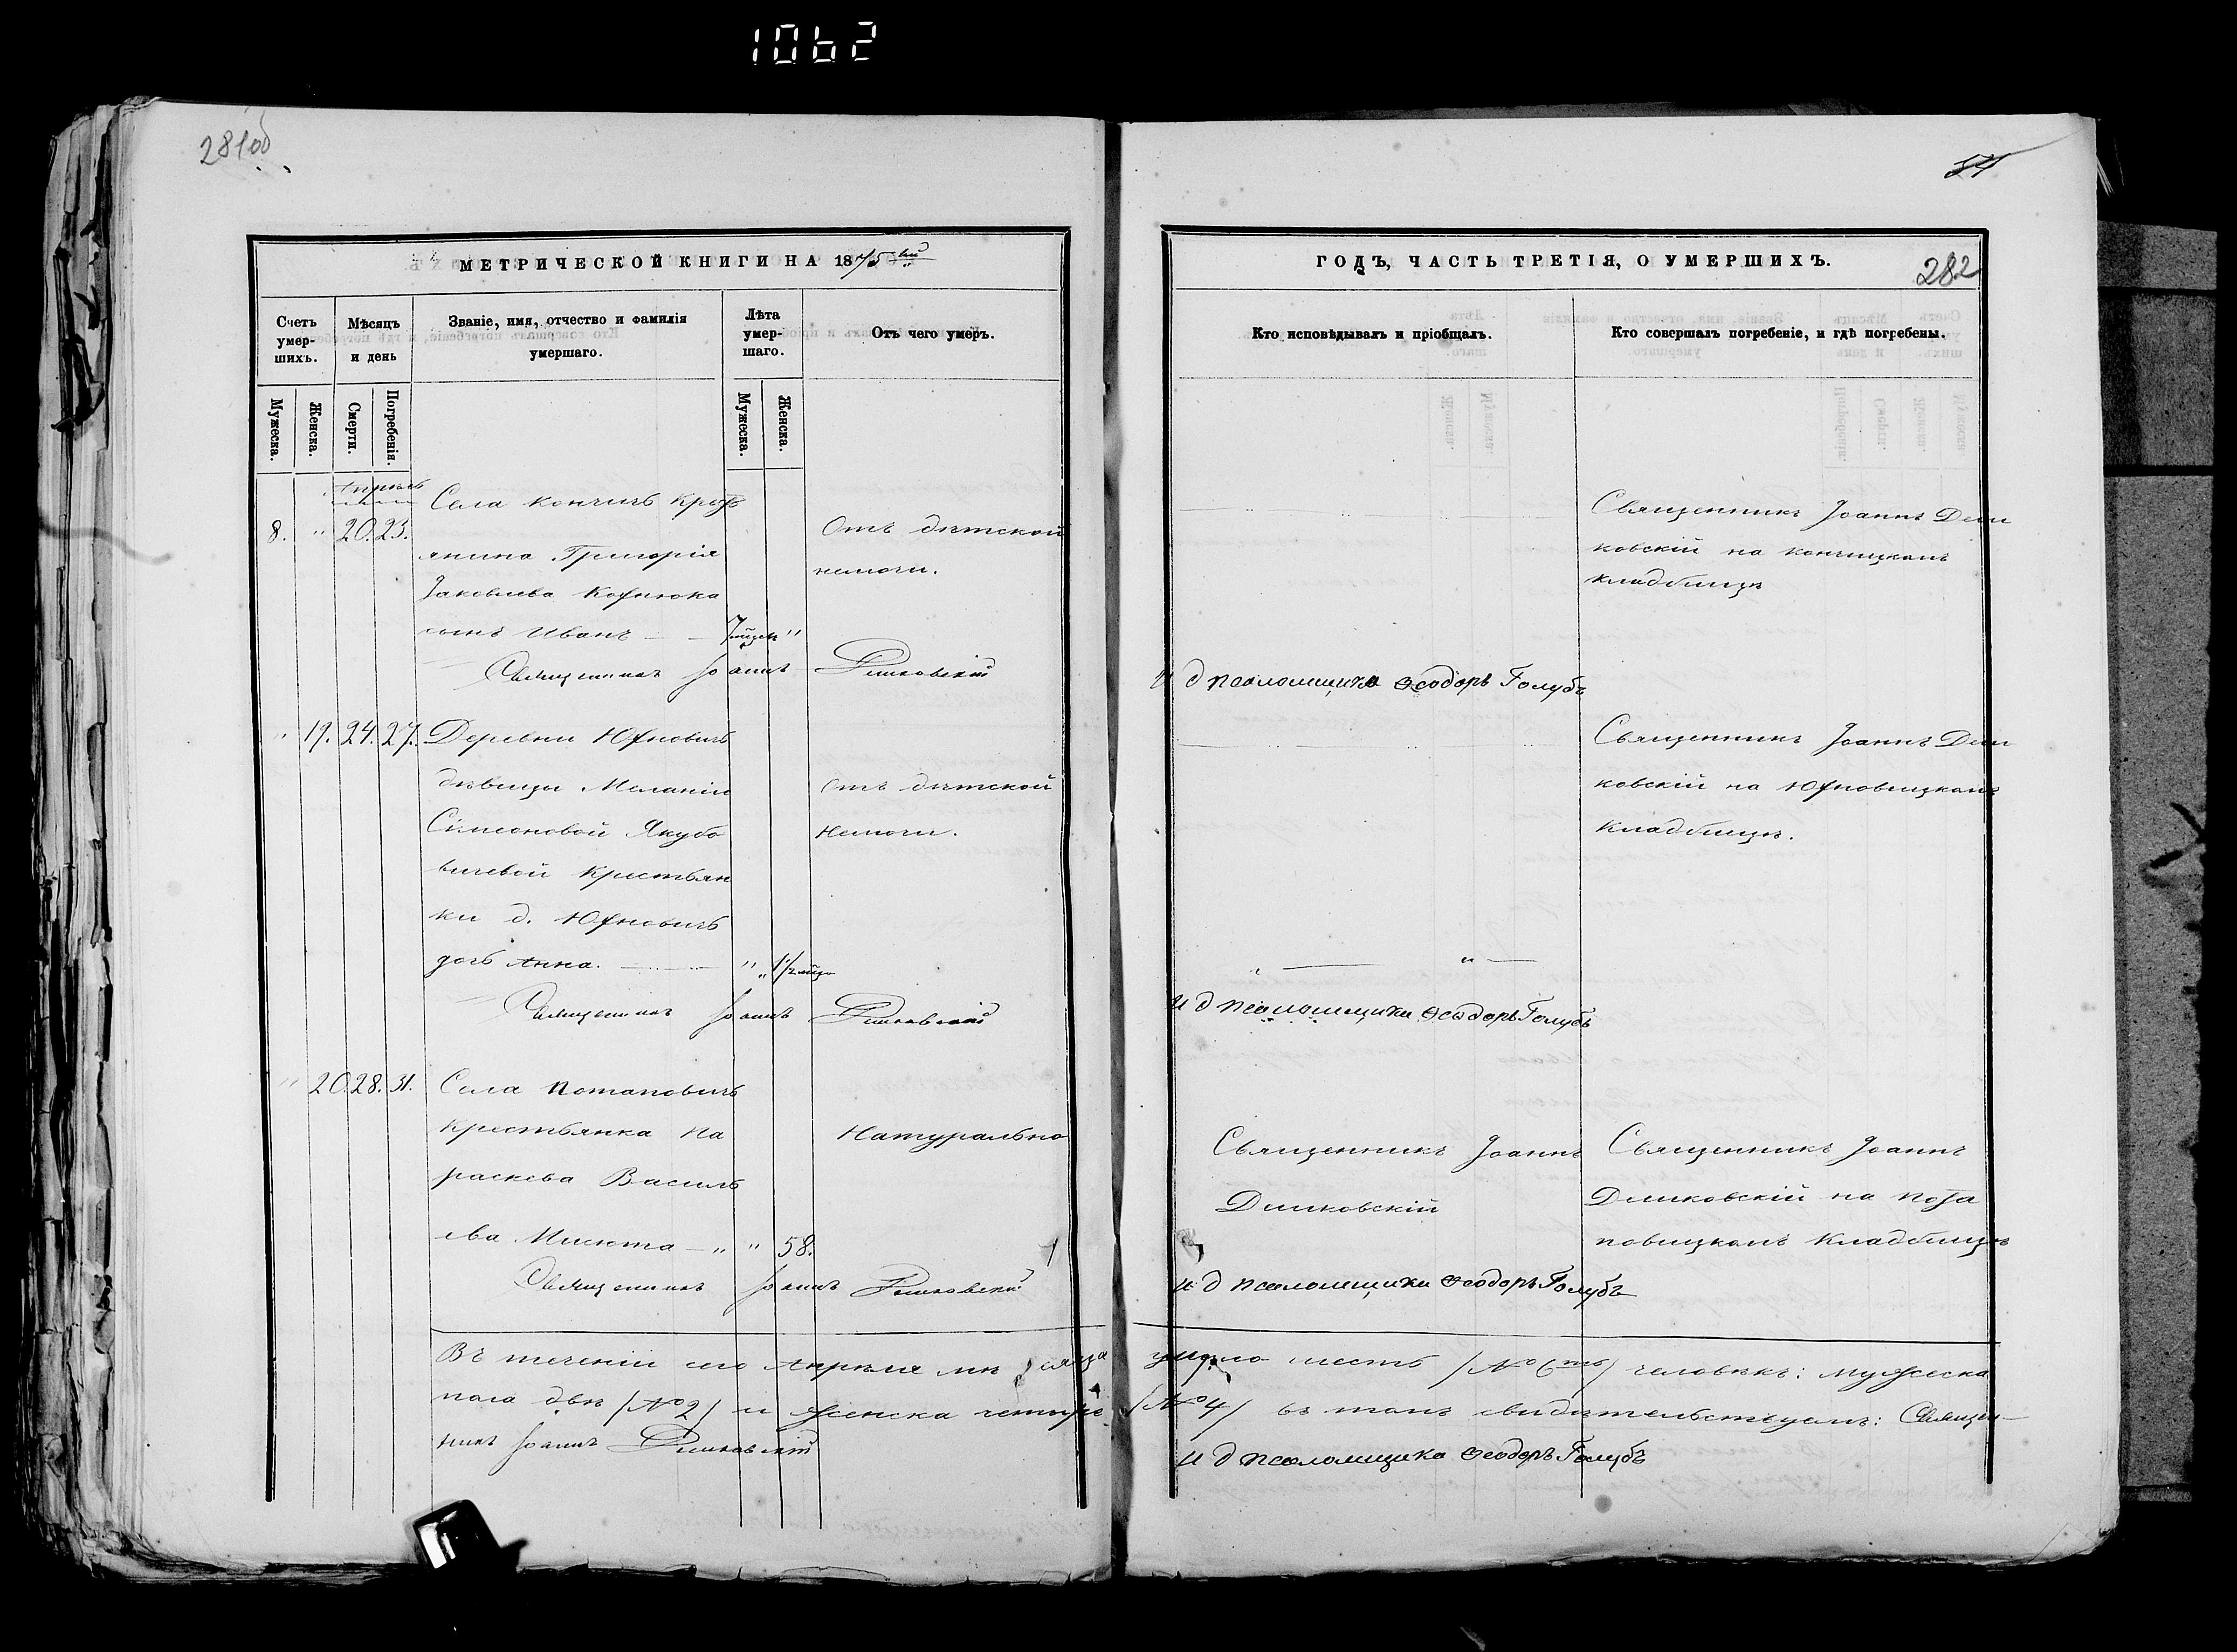 1062
281об
54
МЕТРИЧЕСКОЙ КНИГИ НА 1875ый
ГОДЪ, ЧАСТЬ ТРЕТІЯ, О УМЕРШИХЪ.
282
Счетъ умер-шихъ.
Мѣсяцъ и день
Званіе, имя, отчество и фамилія умершаго.
Лѣта умер-шаго.
Отъ чего умеръ.
Кто исповѣдывалъ и пріобщалъ.
Кто совершалъ погребеніе, и гдѣ погребены.
Мужеска.
Женска.
Смерти.
Погребенія.
Мужеска.
Женска.
Апрѣль
8. " 20. 23.
Села Кончичъ Кресть
янина Григорія
Іаковлева
сынъ Иванъ 7 мѣсец "
Отъ дѣтской
немочи.
Священникъ Іоаннъ Демк
ковскій на Кончицкомъ
кладбищѣ
Священникъ Іоаннъ Демковскій
И д псаломщика Ѳеодоръ Голубъ
" 19. 24. 27.
Деревни Южновичъ
дѣвицы Меланіи
Симеоновой Якубо
вичевой крестьян
ки д. Южновичъ
дочь Анна. " 1/2 мѣсц
Отъ дѣтской
немочи.
Священникъ Іоаннъ
ковскій на Южновицкомъ
кладбищѣ.
Священникъ Іоаннъ Демковскій
И д псаломщика Ѳеодоръ Голубъ
" 20. 28. 31.
Села Потаповичъ
Крестьянка Па
раскева Василь
ева Мисюта " " 58.
Натурально
Священникъ Іоаннъ
Демковскій
Священникъ Іоаннъ
Демковскій на Пота
повицкомъ кладбищѣ
Священникъ Іоаннъ Демковскій
И д псаломщика Ѳеодоръ Голубъ
Въ теченіи сего Апрѣля мѣсяца умерло шесть /№ 6ть/ человѣкъ: мужеска
пола двѣ /№ 2/ и женска четыре /№ 4/ въ томъ свидѣтельствуемъ: Священ-
никъ Іоаннъ Демковскій
И д псаломщика Ѳеодоръ Голубъ